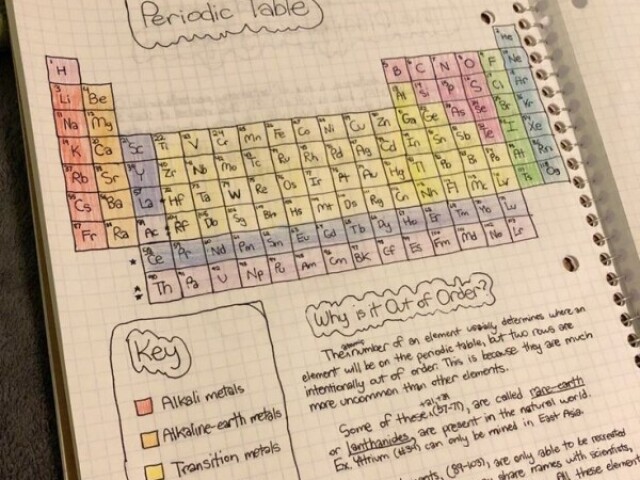 Periodic Table
H He
Li Be B C N O F Ne
Na Mg Al Si P S Cl Ar
K Ca Sc Ti V Cr Mn Fe Co Ni Cu Zn Ga Ge As Se Br Kr
Rb Sr Y Zr Nb Mo Tc Ru Rh Pd Ag Cd In Sn Sb I Xe
Cs Ba La Hf Ta W Re Os Ir Pt Au Hg Tl Pb Bi Po At Rn
Fr Ra Ac Rf Db Sg Bh Hs Mt Ds Rg Cn Nh Fl Mc Lv Ts Og
Ce Pr Nd Pm Sm Eu Gd Tb Dy Ho Er Tm Yb Lu
Th Pa U Np Pu Am Cm BK Cf Es Fm Md No Lr
Key
Alkali metals
Alkaline-earth metals
Transition metals
Why is it Out of Order?
The atomic number of an element usually determines where an
element will be on the periodic table, but two rows are
intentionally out of order. This is because they are much
more uncommon than other elements.
Some of these, (57-71), are called rare-earth
or lanthanides, are present in the natural world.
Ex. Yttrium (#39) can only be mined in East Asia.
(89-103), are only able to be recreated
share names with scientists,
All these